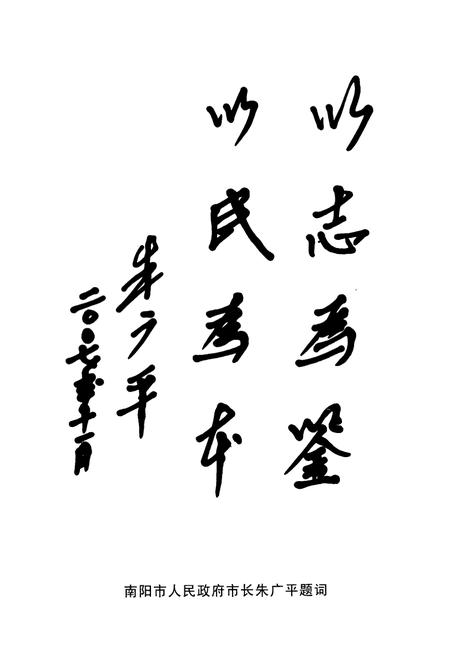 以志为鉴
以民为本
朱广平
二〇〇七年十一月
南阳市人民政府市长朱广平题词